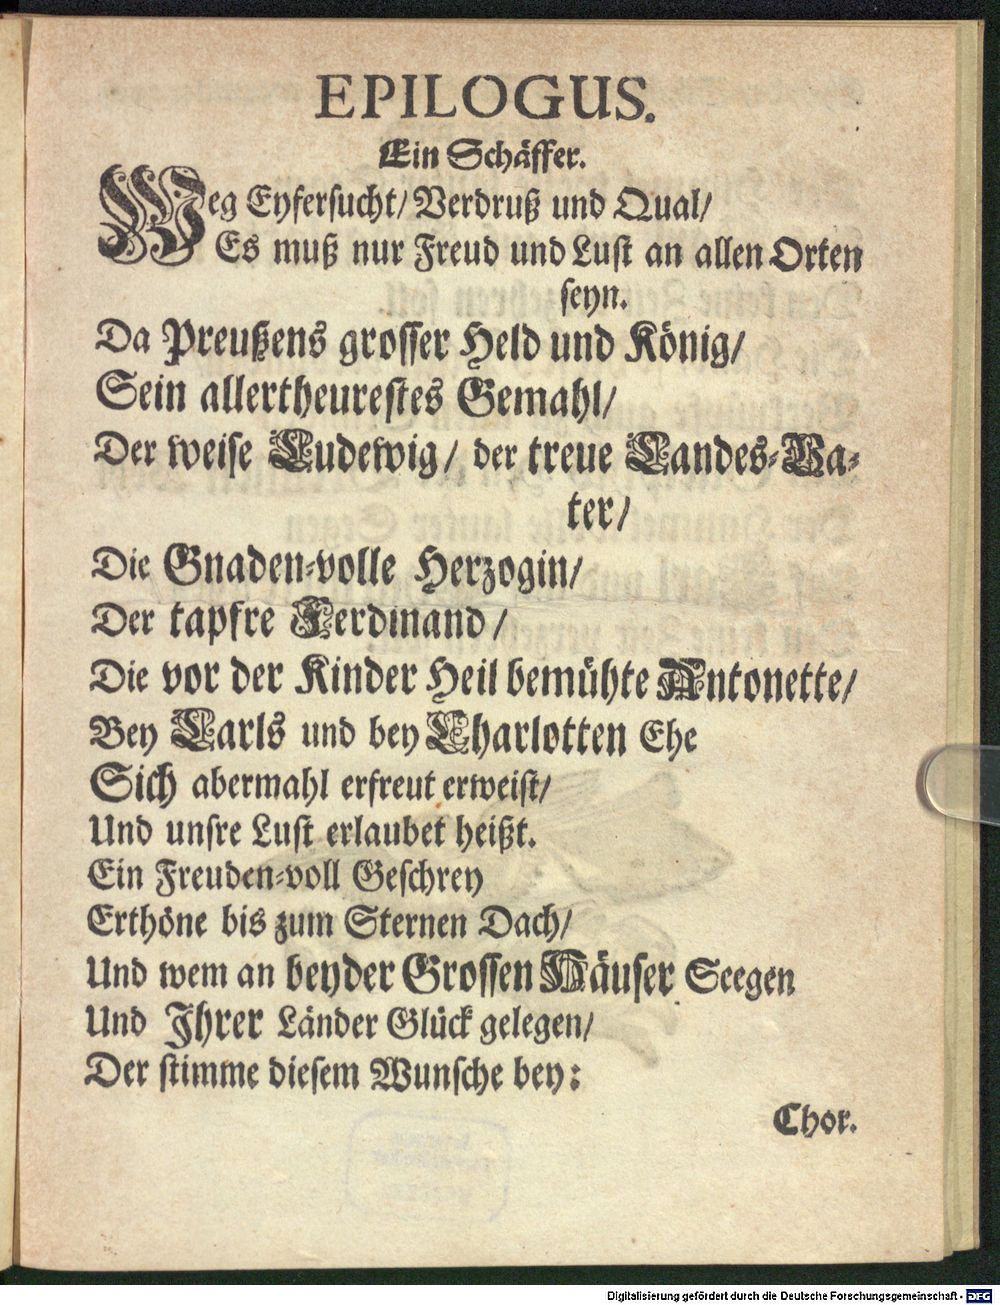 EPILOGUS.
Ein Schäffer.
Weg Eyfersucht/ Verdruß und Qual/
Es muß nur Freud und Lust an allen Orten
seyn.
Da Preußens grosser Held und König/
Sein allertheurestes Gemahl/
Der weise Ludewig/ der treue Landes-Va-
ter/
Die Gnaden-volle Herzogin/
Der tapfre Ferdinand/
Die vor der Kinder Heil bemühte Antonette/
Bey Carls und bey Charlotten Ehe
Sich abermahl erfreut erweist/
Und unsre Lust erlaubet heißt.
Ein Freuden-voll Geschrey
Erthöne bis zum Sternen Dach/
Und wem an beyder Grossen Häuser Seegen
Und Ihrer Länder Glück gelegen/
Der stimme diesem Wunsche bey:
Chor.
Digitalisierung gefördert durch die Deutsche Forschungsgemeinschaft - DFG